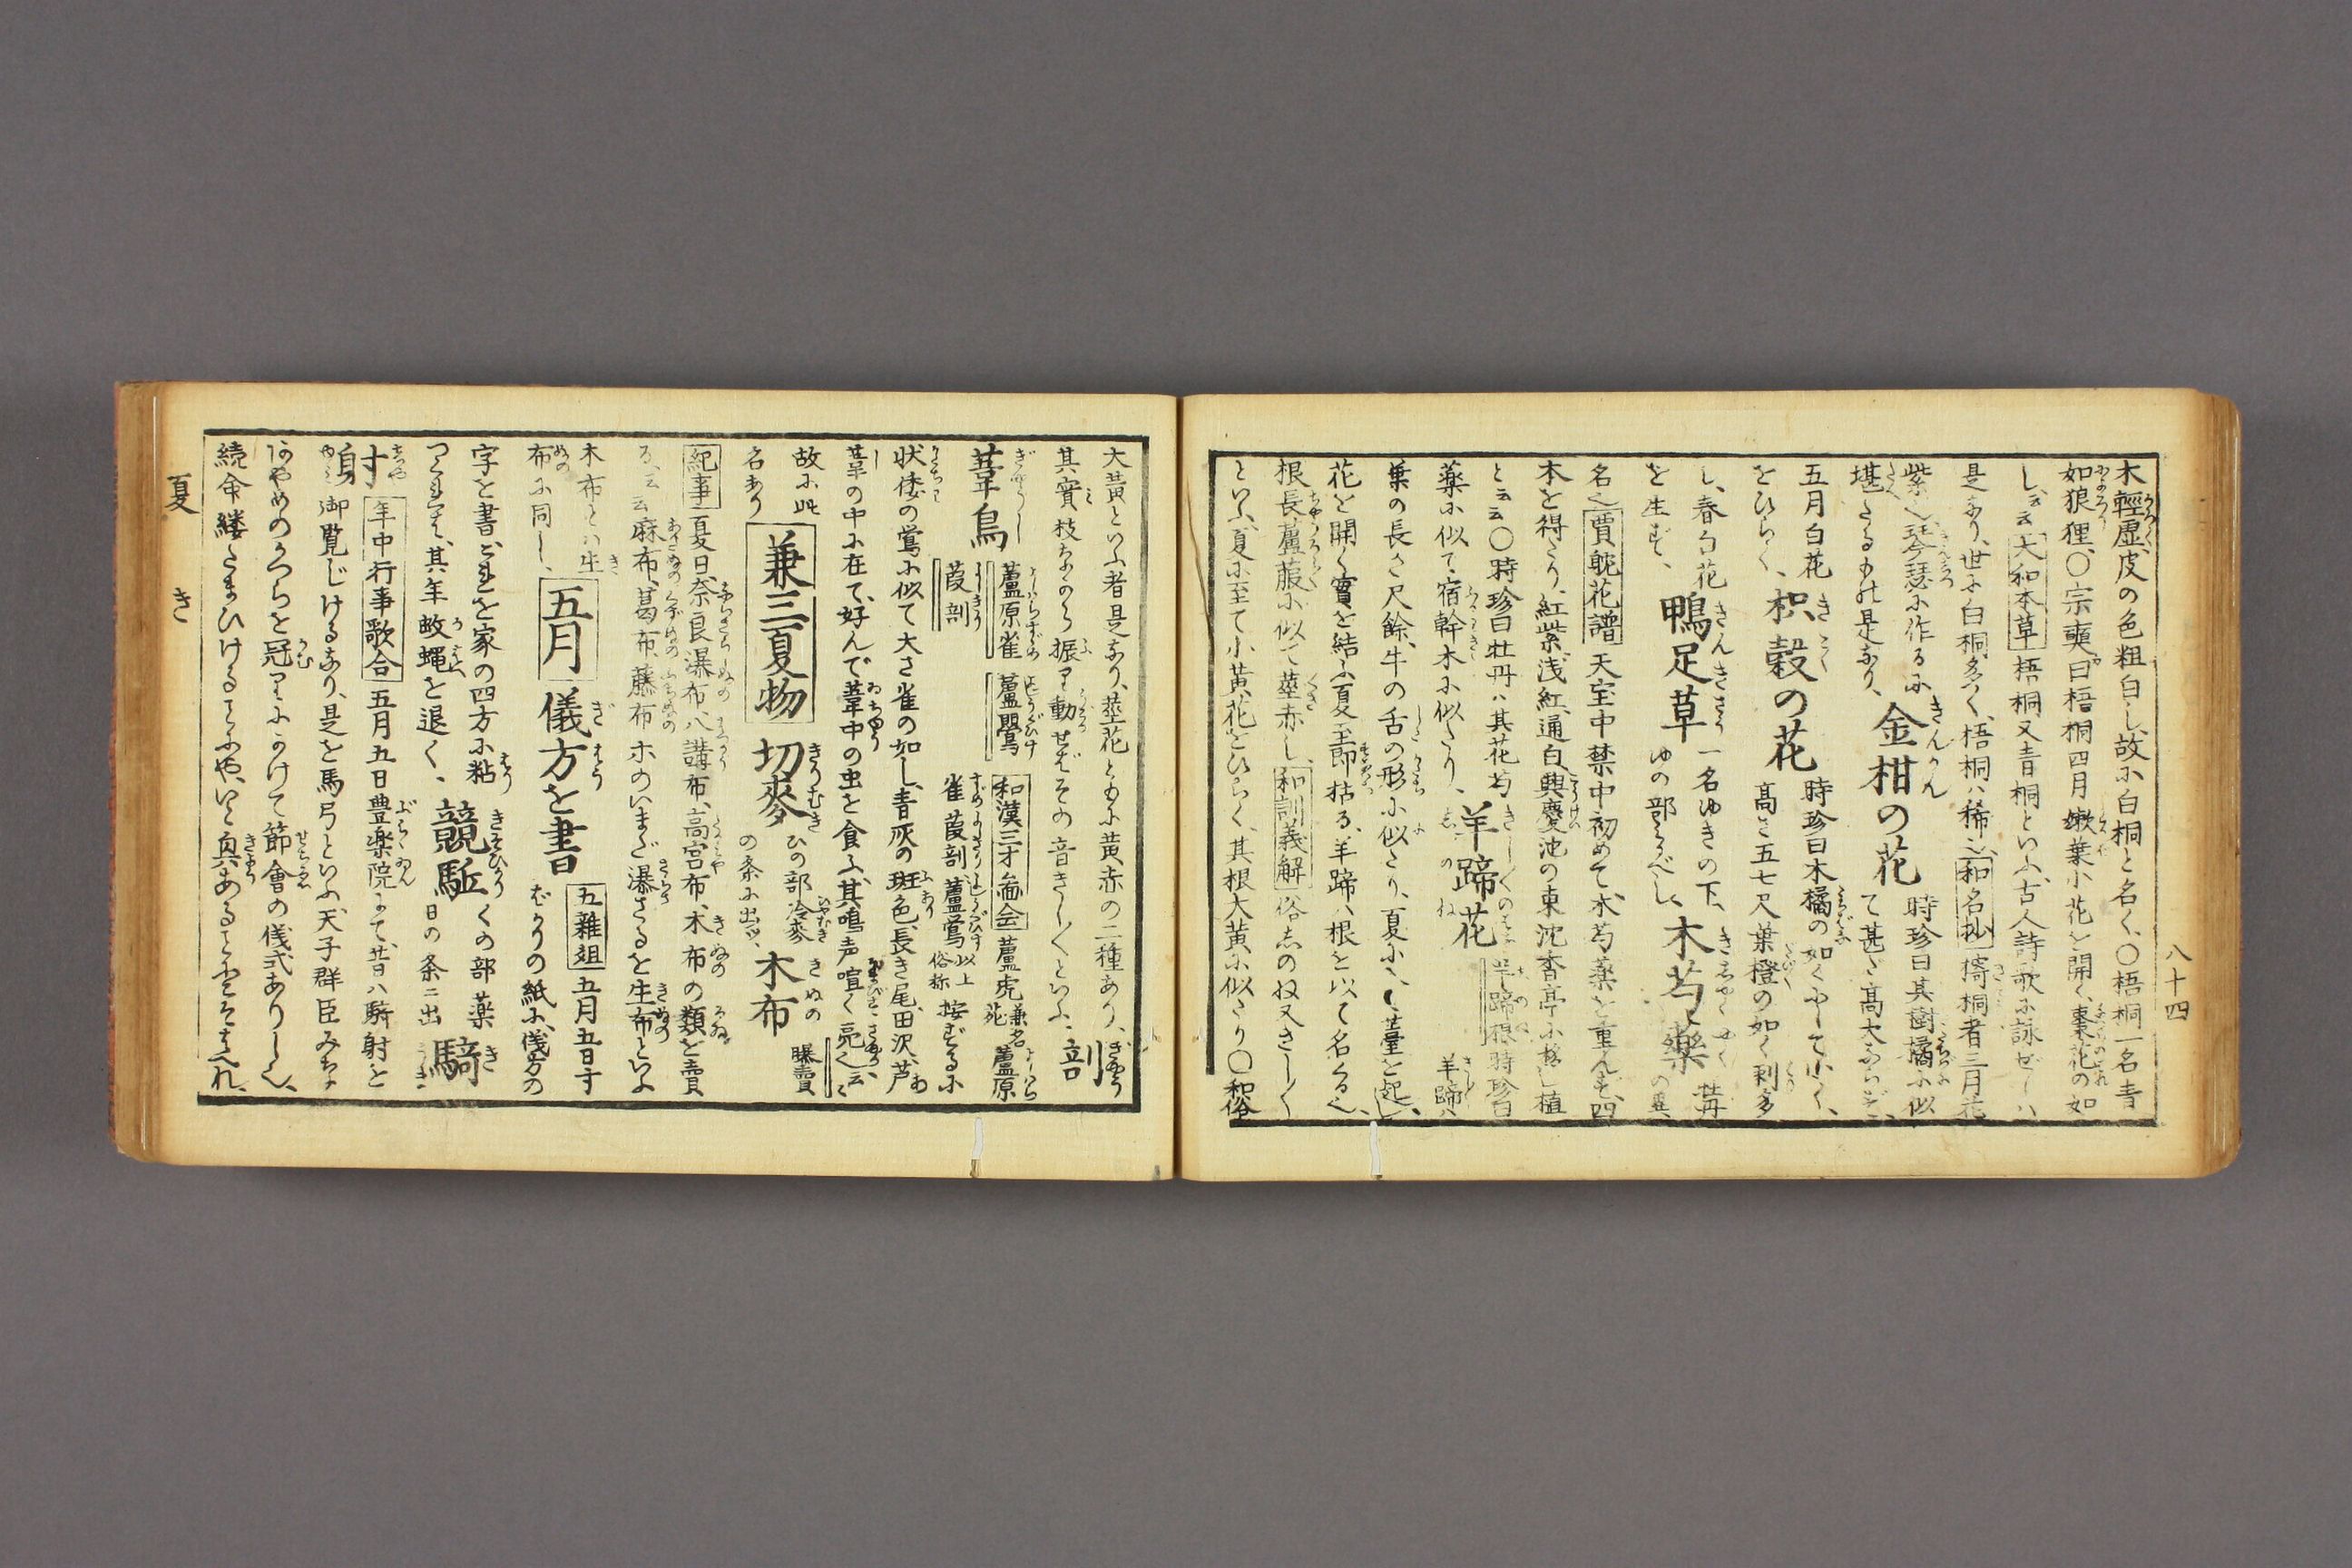 八十四
木輕虚、皮の色粗白し、故に白桐と名く、〇梧桐一名青
如狼狸、〇宗奭曰梧桐四月嫩葉小花を開く、棗花の如
し、云云 大和本草 梧桐又青桐といふ、古人詩歌に詠ぜしハ
是なり、世に白桐多く、梧桐ハ稀也 和名抄 桐者三月花
紫也琴瑟に作るに
堪たるもの是なり、
金柑の花
時珍曰其樹橘に似
て甚だ高大ならず、
五月白花
をひらく、
枳穀の花
時珍曰木橘の如くにして小く、
高さ五七尺葉橙の如く刺多
し、春白花
を生ず、
鴨足草
一名ゆきの下、
ゆの部にみるべし、
木芍藥
牡丹
の異
名也 賈耽花譜 天宝中禁中初めて木芍藥を重んず、四
本を得たり、紅紫浅紅通白興慶池の東沈香亭に移し植
と云云〇時珍曰牡丹ハ其花芍
藥に似て、宿幹木に似たり、
羊蹄花
羊蹄根 時珍曰
羊蹄ハ
葉の長さ尺餘、牛の舌の形に似たり、夏に入て薹を起し、
花を開く實を結ふ夏至即枯る、羊蹄ハ根を以て名くる也、
根長蘆菔に似て莖赤し、 和訓義解 俗志の根又きし〱
といふ、夏に至て小黄花をひらく、其根大黄に似たり〇和俗
大黄といふ者是なり、莖花ともに黄赤の二種あり、
其實枝ながら振り動せばその音きし〱といふ、
剖
葦鳥
蘆原雀 蘆鸎 和漢三才圖会 蘆虎 兼名苑 蘆原
葭剖 雀 葭剖 蘆鶯 以上俗称 按ずるに
状倭の鶯に似て大さ雀の如し、青灰の斑色、長き尾、田沢、芦
葦の中に在て、好んで葦中の虫を食ふ、其鳴声喧く亮也云云、
故に此
名あり
兼三夏物
切麥
ひの部冷麥
の条に出ッ、
木布
曝賣
紀事 夏日奈良瀑布、八講布、高宮布、木布の類を賣
る、云云 麻布、葛布、藤布ホのいまだ瀑さるを生布といふ
木布とハ生
布に同し、
五月
儀方を書
五雜俎 五月五日于
ばかりの紙に、儀方の
字を書、これを家の四方に粘
つくれば、其年蚊蠅を退く、
競駈
くの部藥
日の条ニ出
騎
射
年中行事歌合 五月五日豊楽院にて、昔ハ騎射を
御覧じけるなり、是を馬弓といふ、天子群臣みなに
あやめのかつらを冠にかけて節會の儀式ありしに、
続命縷たまひけるとにや、いと真あることにこそ侍れ、
夏 き